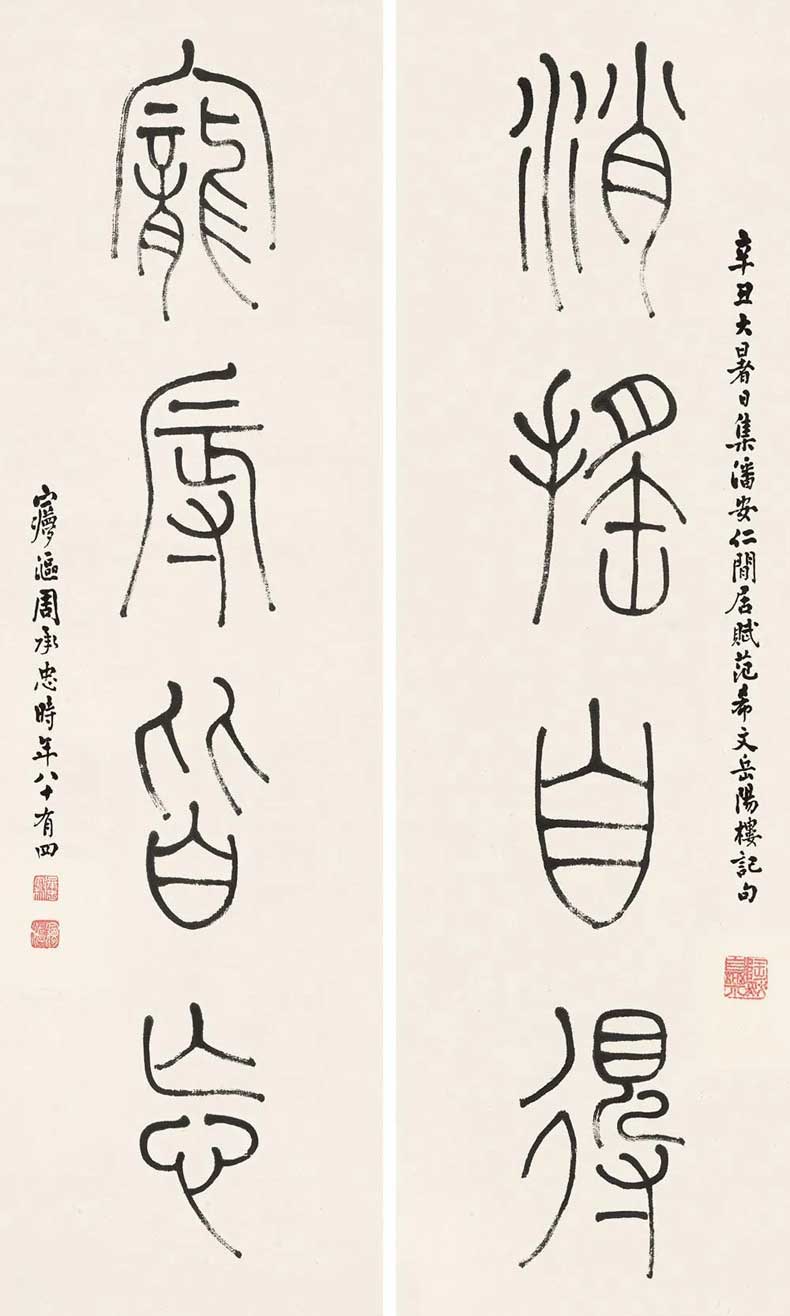 辛丑大暑日集潘安仁閒居賦范希文岳陽樓記句
消搖自得
寵辱皆忘
周承忠時年八十有四